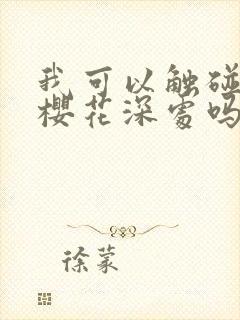 我可以触碰
樱花深处吗
徐蒙